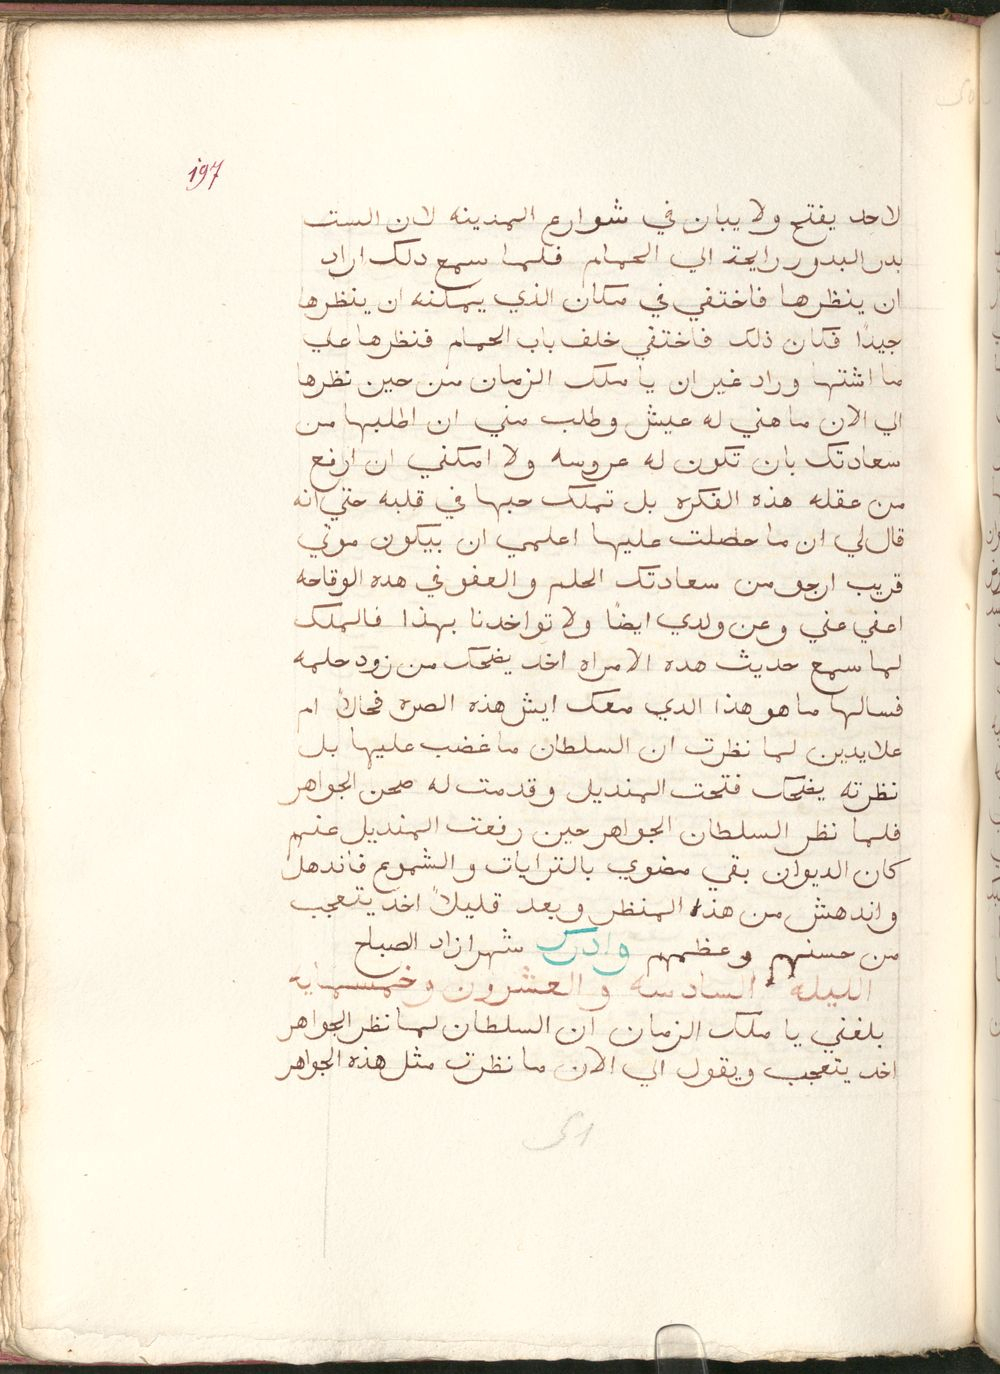 197
لاحد يفتح ولا يبان في شوارع المدينه لان الست
بدر البدور رايحة الي الحمام فلما سمع دلك اراد
ان ينظرها فاختفي في مكان الذي يمكنه ان ينظرها
جيدًا فكان ذلك فاختفي خلف باب الحمام فنظرها علي
ما اشتها وراد غير ان يا ملك الزمان من حين نظرها
الي الان ما هني له عيش وطلب مني ان اطلبها من
سعادتك بان تكون له عروسه ولا امكنني ان ارفع
من عقله هذه الفكره بل تملك حبها في قلبه حتي انه
قال لي ان ما حصلت عليها اعلمي ان بيكون موتي
قريب ارجو من سعادتك الحلم والعفو في هده الوقاحه
اعفي عني وعن ولدي ايضًا ولا تواخدنا بهذا فالملك
لما سمع حديث هده الامراه اخد يضحك من زود حلمه
فسالها ما هو هذا الدي معك ايش هذه الصره فحالاً ام
علايدين لما نظرت ان السلطان ما غضب عليها بل
نظرته يضحك فتحت المنديل وقدمت له صحن الجواهر
فلما نظر السلطان الجواهر حين رفعت المنديل عنهم
كان الديوان بقي مضوي بالترايات والشموع فاندهل
واندهش من هذا المنظر وبعد قليلاً اخد يتعجب
من حسنهم وعظمهم وادرك شهرازاد الصباح
الليله السادسه والعشرون وخمسمايه
بلغني يا ملك الزمان ان السلطان لما نظر الجواهر
اخد يتعجب ويقول الي الان ما نظرت مثل هذه الجواهر